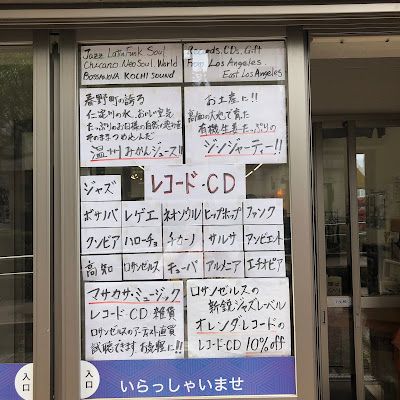 Jazz Latin Funk Soul
Chicano NeoSoul World
BOSSANOVA KOCHI SOUND
Records, CDs, Gift
From Los Angeles
East Los Angeles
春野町の誇る
仁淀川の水、おいしい空気
たっぷりのお日様の自然の恵みを
そのままつめこんだ
温州みかんジュース!!
お土産に!!
高知の大地で育った
有機生姜たっぷりの
ジンジャーティー!!
レコード・CD
ジャズ
ボサノバ
レゲエ
ネオソウル
ヒップホップ
ファンク
クンビア
ハローチョ
チカーノ
サルサ
アンビエント
高知
ロサンゼルス
キューバ
アルメニア
エチオピア
マサカサ・ミュージック
レコード・CD 雑貨
ロサンゼルスのアーティスト直買
試聴できます。お気軽に!!
ロサンゼルスの
新鋭ジャズレーベル
オレンダ・レコードの
レコード・CD 10%off
入口
入口
いらっしゃいませ